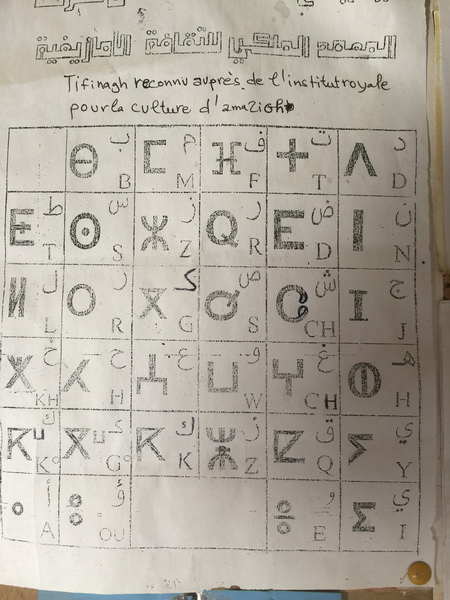 المعهد الملكي للثقافة الأمازيغية
Tifinagh reconnu auprès de l'institut royale
pour la culture d'amazigh
ⴱ ب B ⵎ م M ⴼ ف F ⵜ ت T ⴷ د D
ⵟ ط T ⵙ س S ⵣ ز Z ⵕ ر R ⴹ ض D ⵏ ن N
ⵍ ل L ⵔ ر R ⴳ گ G ⵚ ص S ⵛ ش CH ⵊ ج J
ⵅ خ KH ⵃ ح H ⵄ ع ⵡ و W ⵖ غ CH ⵀ هـ H
ⴽⵯ ك K° ⴳⵯ گ G° ⴽ ك K ⵥ ز Z ⵇ ق Q ⵢ ي Y
ⴰ أ A ⵓ ؤ OU ⴻ و E ⵉ ي I